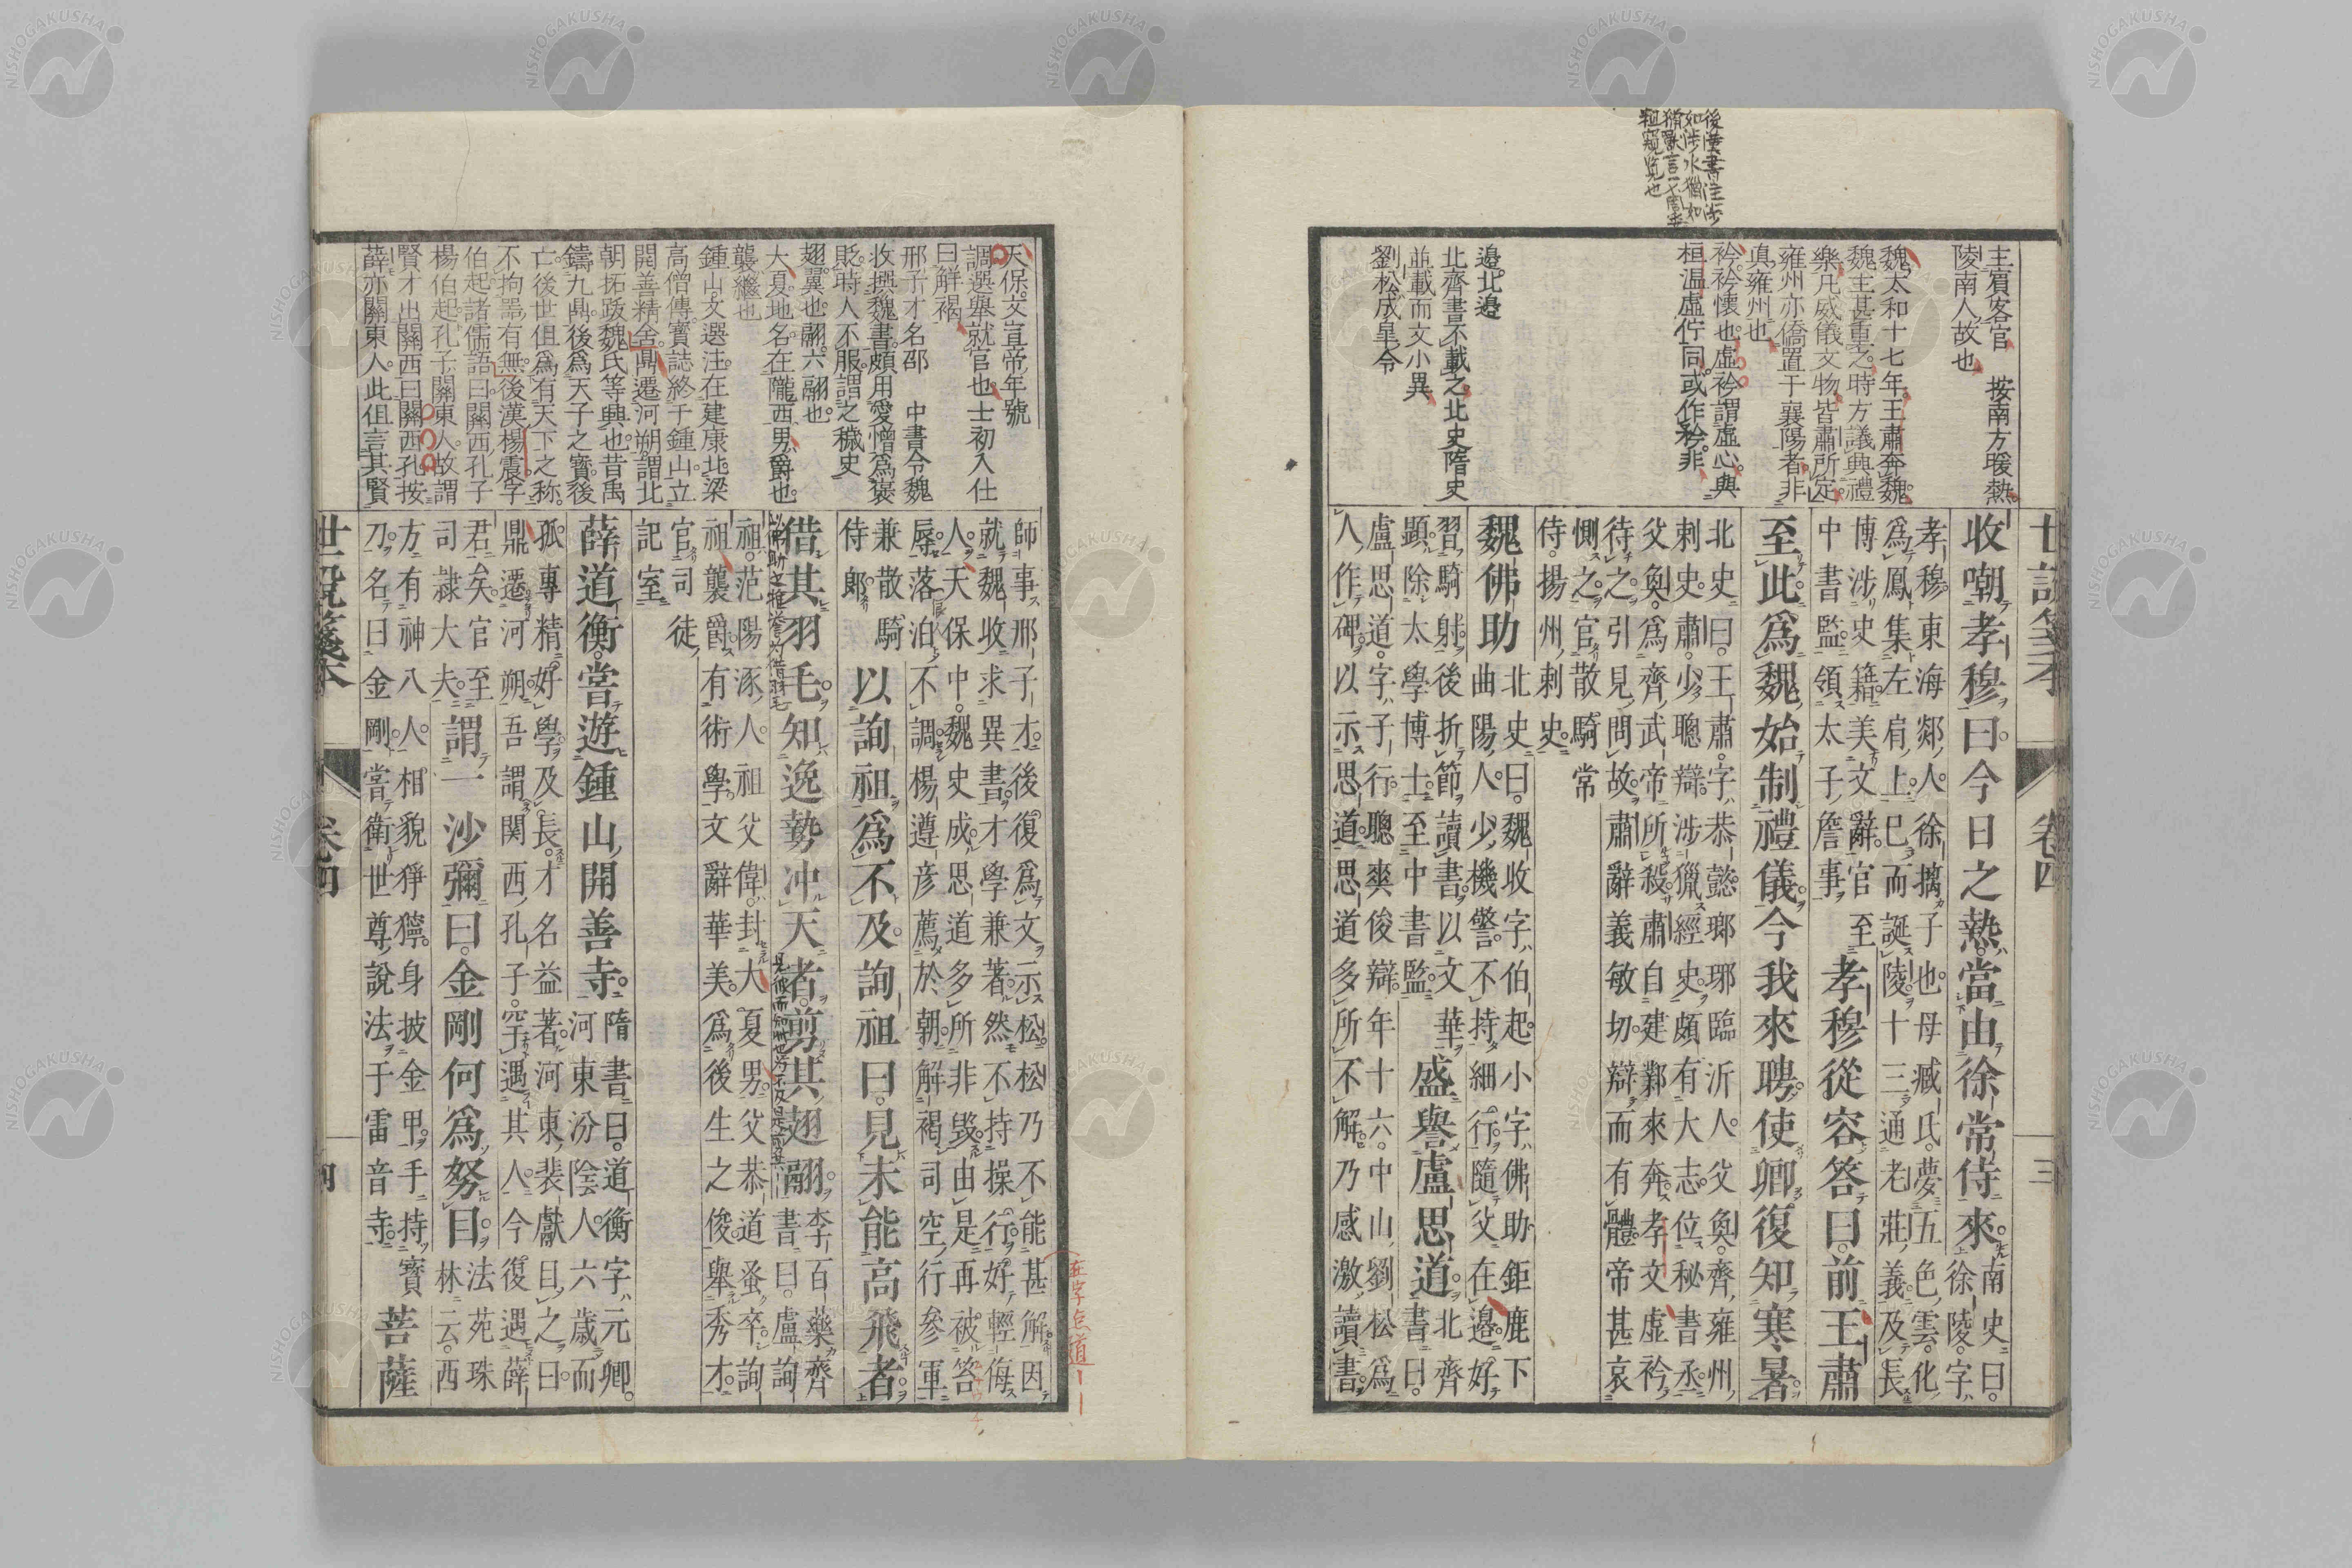 後漢書注涉
如涉水獵如
獵獸言不周悉
粗窺覽也
主賓客官 按南方暖熱
陵南人故也
魏太和十七年王肅奔魏
魏主甚重之時方議興禮
樂凡威儀文物皆肅所定
雍州亦僑置于襄陽者非
眞雍州也
衿衿懷也虛衿謂虛心與
桓溫虛佇同或作矜非
邉北邉
北齊書不載之北史隋史
並載而文小異
劉松成臯令
世說箋本 卷四 三
收嘲孝穆曰今日之熱當由徐常侍來
南史曰
徐陵字
孝穆東海郯人徐摛子也母臧氏夢五色雲化
爲鳳集左肩上巳而誕陵十三通老莊義及長
博涉史籍美文辭官至
中書監領太子詹事
孝穆從容答曰前王肅
至此爲魏始制禮儀今我來聘使卿復知寒暑
北史曰王肅字恭懿瑯琊臨沂人父奐齊雍州
刺史肅少聰辯涉獵經史頗有大志位秘書丞
父奐爲齊武帝所殺肅自建鄴來奔孝文虛衿
待之引見問故肅辭義敏切辯而有體帝甚哀
惻之官散騎常
侍揚州刺史
魏佛助
北史曰魏收字伯起小字佛助鉅鹿下
曲陽人少機警不持細行隨父在邉好
習騎射後折節讀書以文華
顯除太學博士至中書監
盛譽盧思道
北齊
書曰
盧思道字子行聰爽俊辯年十六中山劉松爲
人作碑以示思道思道多所不解乃感激讀書
天保文宣帝年號
調選舉就官也士初入仕
曰解褐
邢子才名邵 中書令魏
收撰魏書頗用愛憎爲褒
貶時人不服謂之穢史
翅翼也翮六翮也
大夏地名在隴西男爵也
襲繼也
鍾山文選注在建康北梁
高僧傳寶誌終于鍾山立
開善精舍鼎遷河朔謂北
朝拓跋魏氏等興也昔禹
鑄九鼎後爲天子之寶後
亡後世但爲有天下之称
不拘噐有無後漢楊震字
伯起諸儒語曰關西孔子
楊伯起孔子關東人故謂
賢才出關西曰關西孔按
薛亦關東人此但言其賢
師事邢子才後復爲文示松松乃不能甚解因
就魏收求異書才學兼著然不持操行好輕侮
人天保中魏史成思道多所非毀由是再被笞
辱落泊不調楊遵彦薦於朝解褐司空行參軍
兼散騎
侍郞
以詢祖爲不及詢祖曰見未能高飛者
借其羽毛知逸勢冲天者剪其翅翮
李百藥齊
書曰盧詢
祖范陽涿人祖父偉封大夏男父恭道蚤卒詢
祖襲爵有術學文辭華美爲後生之俊舉秀才
官司徒
記室
薛道衡嘗遊鍾山開善寺
隋書曰道衡字元卿
河東汾陰人六歲而
孤專精好學及長才名益著河東裴讞目之曰
鼎遷河朔吾謂関西孔子空遇其人今復遇薛
君矣官至
司隷大夫
謂一沙彌曰金剛何爲努目
法苑珠
林云西
方有神八人相貌猙獰身披金甲手持寶
刀名曰金剛嘗衛世尊說法于雷音寺
菩薩
世說箋本 卷四 四